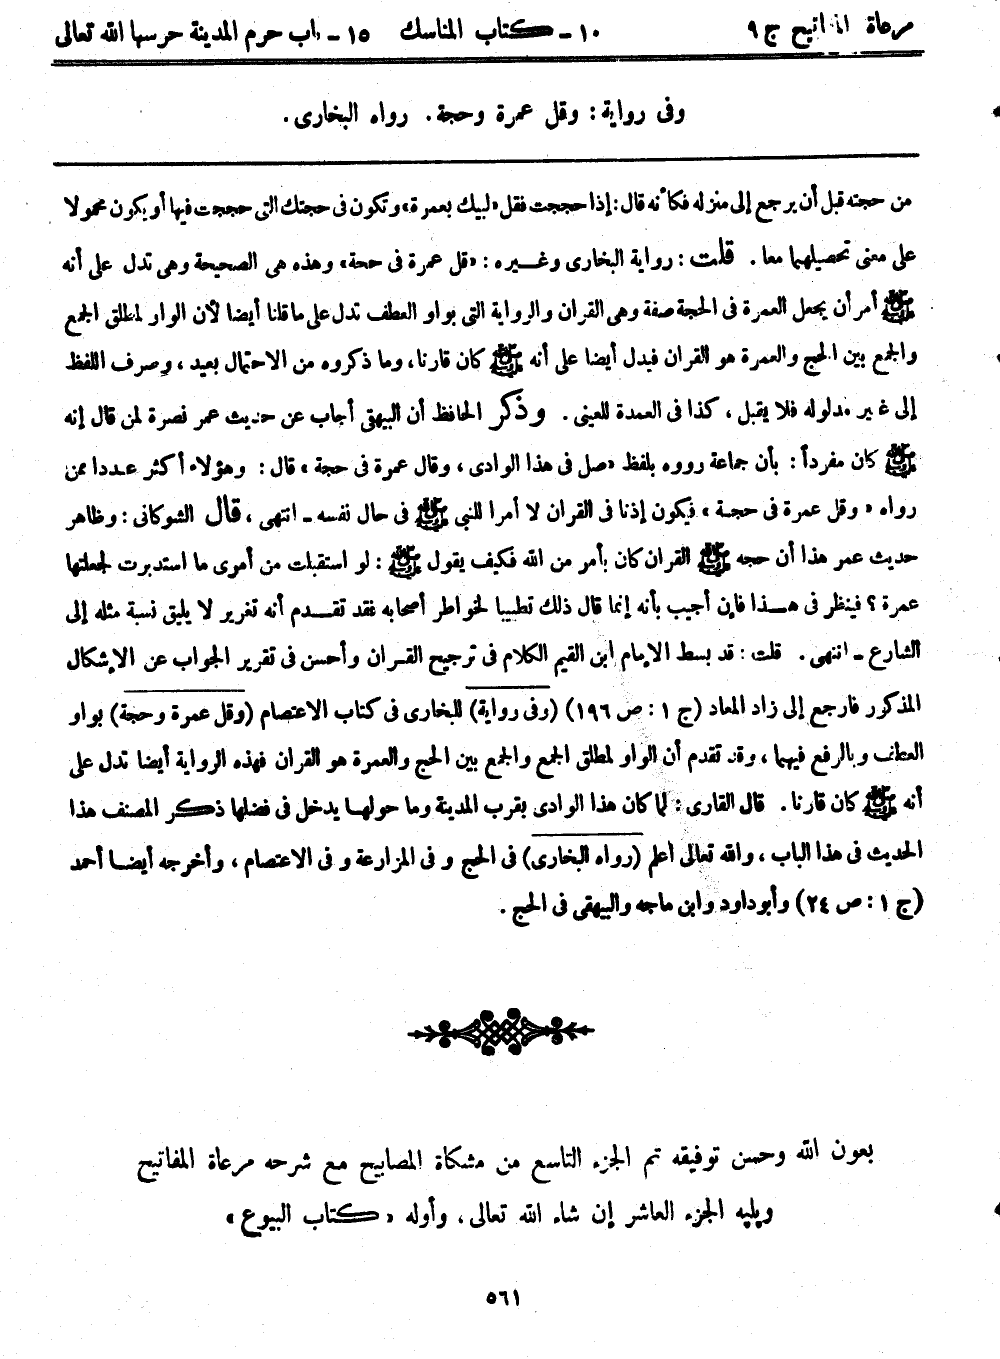 مرعاة المفاتيح ج ٩ ١٠ - كتاب المناسك ١٥ - باب حرم المدينة حرسها الله تعالى
وفى رواية: وقل عمرة وحجة. رواه البخارى.
من حجته قبل أن يرجع إلى منزله فكأنه قال: إذا حججت فقل «لبيك بعمرة» وتكون فى حجتك التى حججت فيها أو يكون محمولا
على معنى تحصيلهما معا. قلت: رواية البخارى وغيره: «قل عمرة فى حجة» وهذه هى الصحيحة وهى تدل على أنه
ﷺ أمر أن يجعل العمرة فى الحجة صفة وهى القران والرواية التى بواو العطف تدل على ما قلنا أيضا لأن الواو لمطلق الجمع
والجمع بين الحج والعمرة هو القران فيدل أيضا على أنه ﷺ كان قارنا، وما ذكروه من الاحتمال بعيد، وصرف اللفظ
إلى غير مدلوله فلا يقبل، كذا فى العمدة للعينى. وذكر الحافظ أن البيهقى أجاب عن حديث عمر نصرة لمن قال إنه
ﷺ كان مفرداً: بأن جماعة رووه بلفظ «صل فى هذا الوادى، وقال عمرة فى حجة» قال: وهؤلاء أكثر عددا ممن
رواه «وقل عمرة فى حجة» فيكون إذنا فى القران لا أمرا للنبى ﷺ فى حال نفسه - انتهى، قال الشوكانى: وظاهر
حديث عمر هذا أن حجه ﷺ القران كان بأمر من الله فكيف يقول ﷺ: لو استقبلت من أمرى ما استدبرت لجعلتها
عمرة؟ فينظر فى هذا فإن أجيب بأنه إنما قال ذلك تطييبا لخواطر أصحابه فقد تقدم أنه تغرير لا يليق نسبة مثله إلى
الشارع - انتهى. قلت: قد بسط الإمام ابن القيم الكلام فى ترجيح القران وأحسن فى تقرير الجواب عن الإشكال
المذكور فارجع إلى زاد المعاد (ج ١: ص ١٩٦) (وفى رواية) للبخارى فى كتاب الاعتصام (وقل عمرة وحجة) بواو
العطف وبالرفع فيهما، وقد تقدم أن الواو لمطلق الجمع والجمع بين الحج والعمرة هو القران فهذه الرواية أيضا تدل على
أنه ﷺ كان قارنا. قال القارى: لما كان هذا الوادى بقرب المدينة وما حولها يدخل فى فضلها ذكر المصنف هذا
الحديث فى هذا الباب، والله تعالى أعلم (رواه البخارى) فى الحج وفى المزارعة وفى الاعتصام، وأخرجه أيضا أحمد
(ج ١: ص ٢٤) وأبو داود وابن ماجه والبيهقى فى الحج.
بعون الله وحسن توفيقه تم الجزء التاسع من مشكاة المصابيح مع شرحه مرعاة المفاتيح
ويليه الجزء العاشر إن شاء الله تعالى، وأوله «كتاب البيوع»
٥٦١